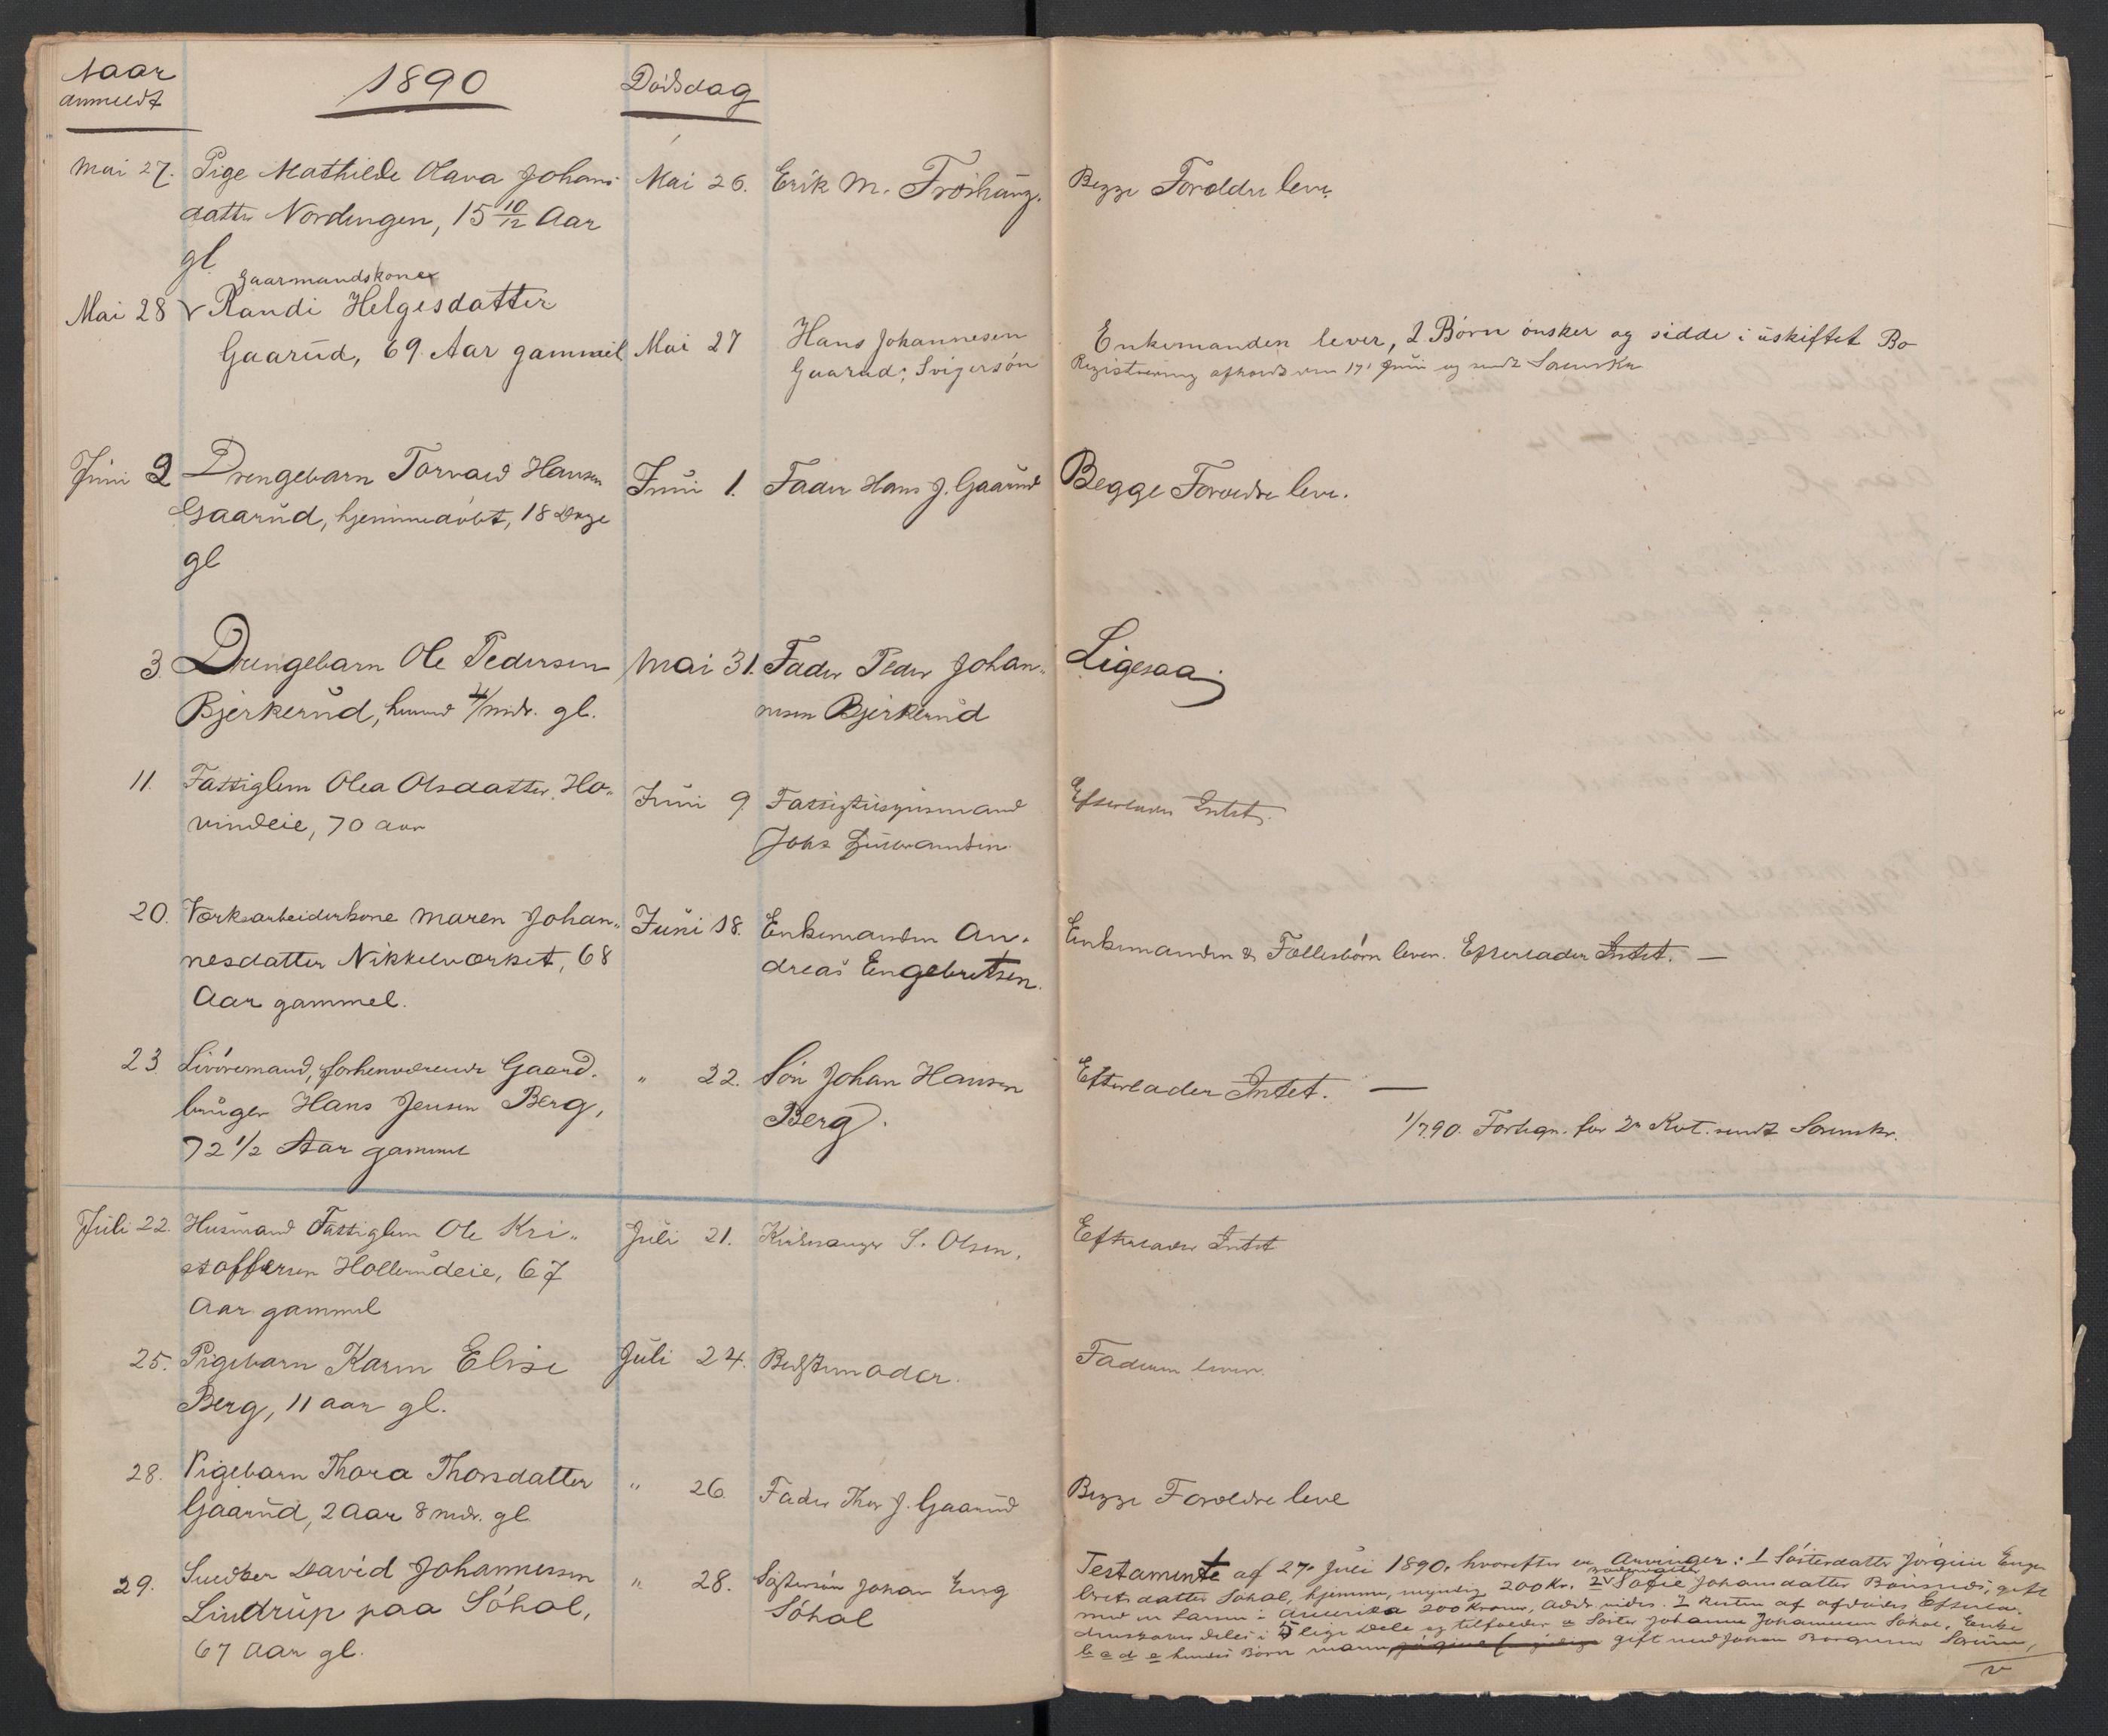 Naar
anmeldt
1890
Dödsdag
Mai 27. Pige Mathilde Olava Johans
datter Nordengen, 15 10/12 Aar
gl.
Mai 26. Erik M. Fröshaug.
Begge Forældre leve.
Gaarmandskone
Mai 28 Randi Helgesdatter
Gaarud, 69 Aar gammel
Mai 27
Hans Johannesen
Gaarud, Svigersön
Enkemanden lever, 2 Börn önsker og sidde i uskiftet Bo
Registrering afholdt den 17' Juni og sendt Sorenskr.
Juni 2 Drengebarn Torvald Hansen
Gaarud, hjemmedöbt, 18 Dage
gl
Juni 1. Fader Hans J. Gaarud
Begge Forældre leve.
3. Drengebarn Ole Pedersen
Bjerkerud, 4 mdr. gl.
Mai 31. Fader Peder Johan„
nesen Bjerkerud
Ligesaa
11. Fattiglem Olea Olsdatter Ho„
vindeie, 70 aar
Juni 9. Fattigtilsynsmand
Johs
Efterlader Intet.
20. Værksarbeiderkone Maren Johan„
nesdatter Nikkelværket, 68
Aar gammel.
Juni 18. Enkemanden An„
dreas Engebretsen.
Enkemanden & Fællesbörn lever. Efterlader Intet. —
23 Livöremand, forhenværende Gaard„
bruger Hans Jensen Berg,
72 1/2 Aar gammel
" 22. Sön Johan Hansen
Berg.
Efterlader Intet. —
1/7 90. Fortegn. for 2n Kvt. sendt Sorenskr.
Juli 22. Husmand Fattiglem Ole Kri„
stoffersen Hollerudeie, 67
Aar gammel
Juli 21. Kirkesanger S. Olsen.
Efterlader Intet
25. Pigebarn Karen Elise
Berg, 11 aar gl.
Juli 24. Bedstemoder.
Faderen lever.
28. Pigebarn Thora Thorsdatter
Gaarud, 2 Aar 8 mdr. gl.
" 26. Fader Thor J. Gaarud
Begge Forældre leve
29. Snedker David Johannesen
Lindrup paa Söhol,
67 Aar gl.
" 28. Söstersön Johan Eng
Söhol
Testamente af 27. Juli 1890, hvorefter er Arvinger: 1 Sösterdatter Jörgine Enge
bretsdatter Söhol, hjemme, myndig 200 Kr. 2 Sofie Johansdatter gift
med en Larsen i Amerika 200 Kroner, Resten af afdödes Efterla„
denskaber deles i 5 lige Dele og tilfalder a Söster Johanne Johannesen Söhol, Enke
b c d e hendes Börn gift med Johan